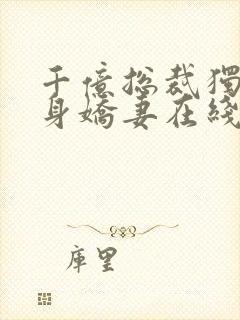 千億総裁獨
身嬌妻在綫
庫里